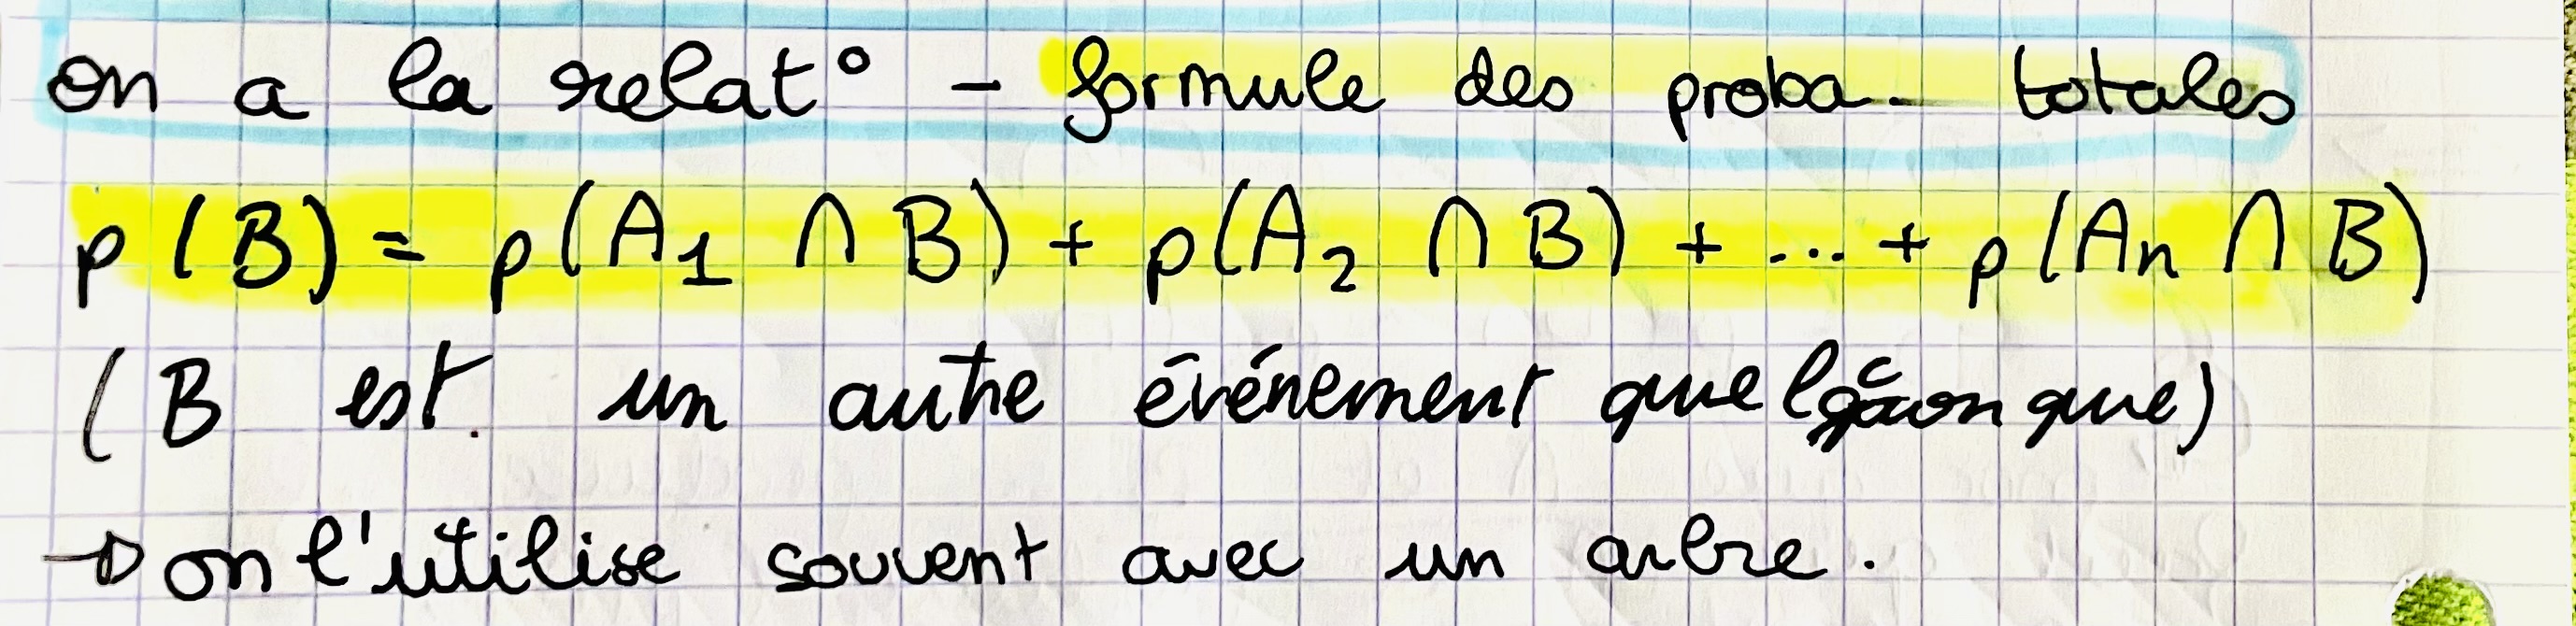 on a la relat° - formule des proba. totales
p(B) = p(A₁ ∩ B) + p(A₂ ∩ B) + ... + p(An ∩ B)
(B est un autre événement quelconque)
→ on l'utilise souvent avec un arbre.